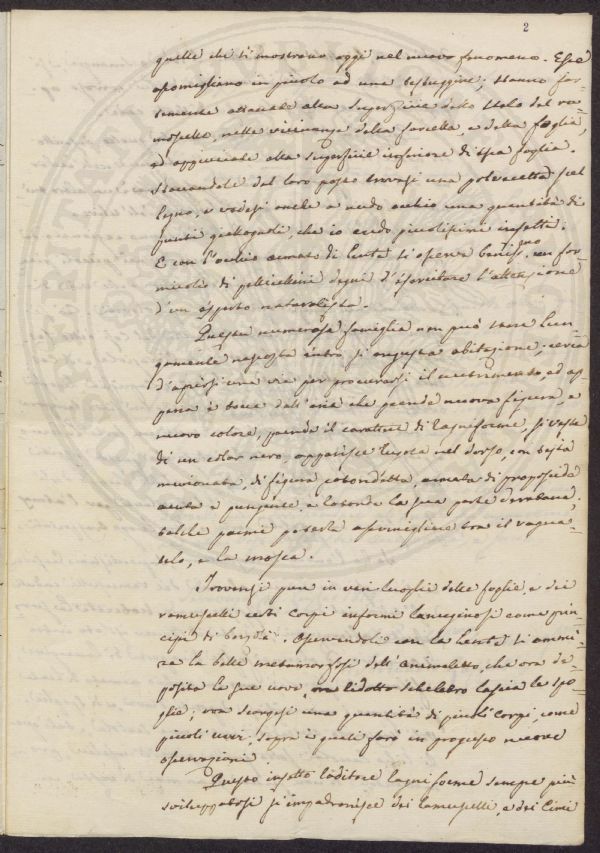 2
quelle che si mostrano oggi nel nuovo fenomeno. Esse
assomigliano in piccolo ad una testuggine; stanno for-
temente attaccate alla superficie dello stelo del ra-
moscello, nelle vicinanze della foglia,
ed appiccicate alla superficie inferiore di essa foglia.
Staccandole dal loro posto trovasi una sul
legno, e vedesi anche a nudo occhio una quantità di
punti giallognoli, che io credo piccolissimi insetti:
E con l'occhio armato di lente si osserva benissimo un for-
micolio di pellicellini degni d'esercitare l'attenzione
d'un esperto naturalista.
Questa numerosa famiglia non può stare lun-
gamente nascosta entro sì angusta abitazione; cerca
d'aprirsi una via per procurarsi il nutrimento, ed ap-
pena è tocca dall'aria che prende nuova figura, e
nuovo colore, prende il carattere di ragniforme, si veste
di un color nero, apparisce lucida nel dorso, con testa
di figura rotondetta, armata di proboscide
acuta e pungente, e rotonda la sua parte deretana,
talché parmi poterla assomigliare tra il ragna-
telo, e la mosca.
Trovansi pure in vari luoghi delle foglie, e dei
ramuscelli certi corpi informi lanuginosi come prin-
cipj di bozzoli. Osservandoli con la lente si ammi-
ra la bella metamorfosi dell'animaletto, che ora de-
posita le sue uova, ora ridotto scheletro lascia le spo-
glie; ora scorgesi una quantità di piccoli corpi, come
piccoli uovi, sopra i quali farò in progresso nuove
osservazioni.
Questo insetto ragniforme sempre più
sviluppatosi si impadronisce dei ramuscelli, e dei